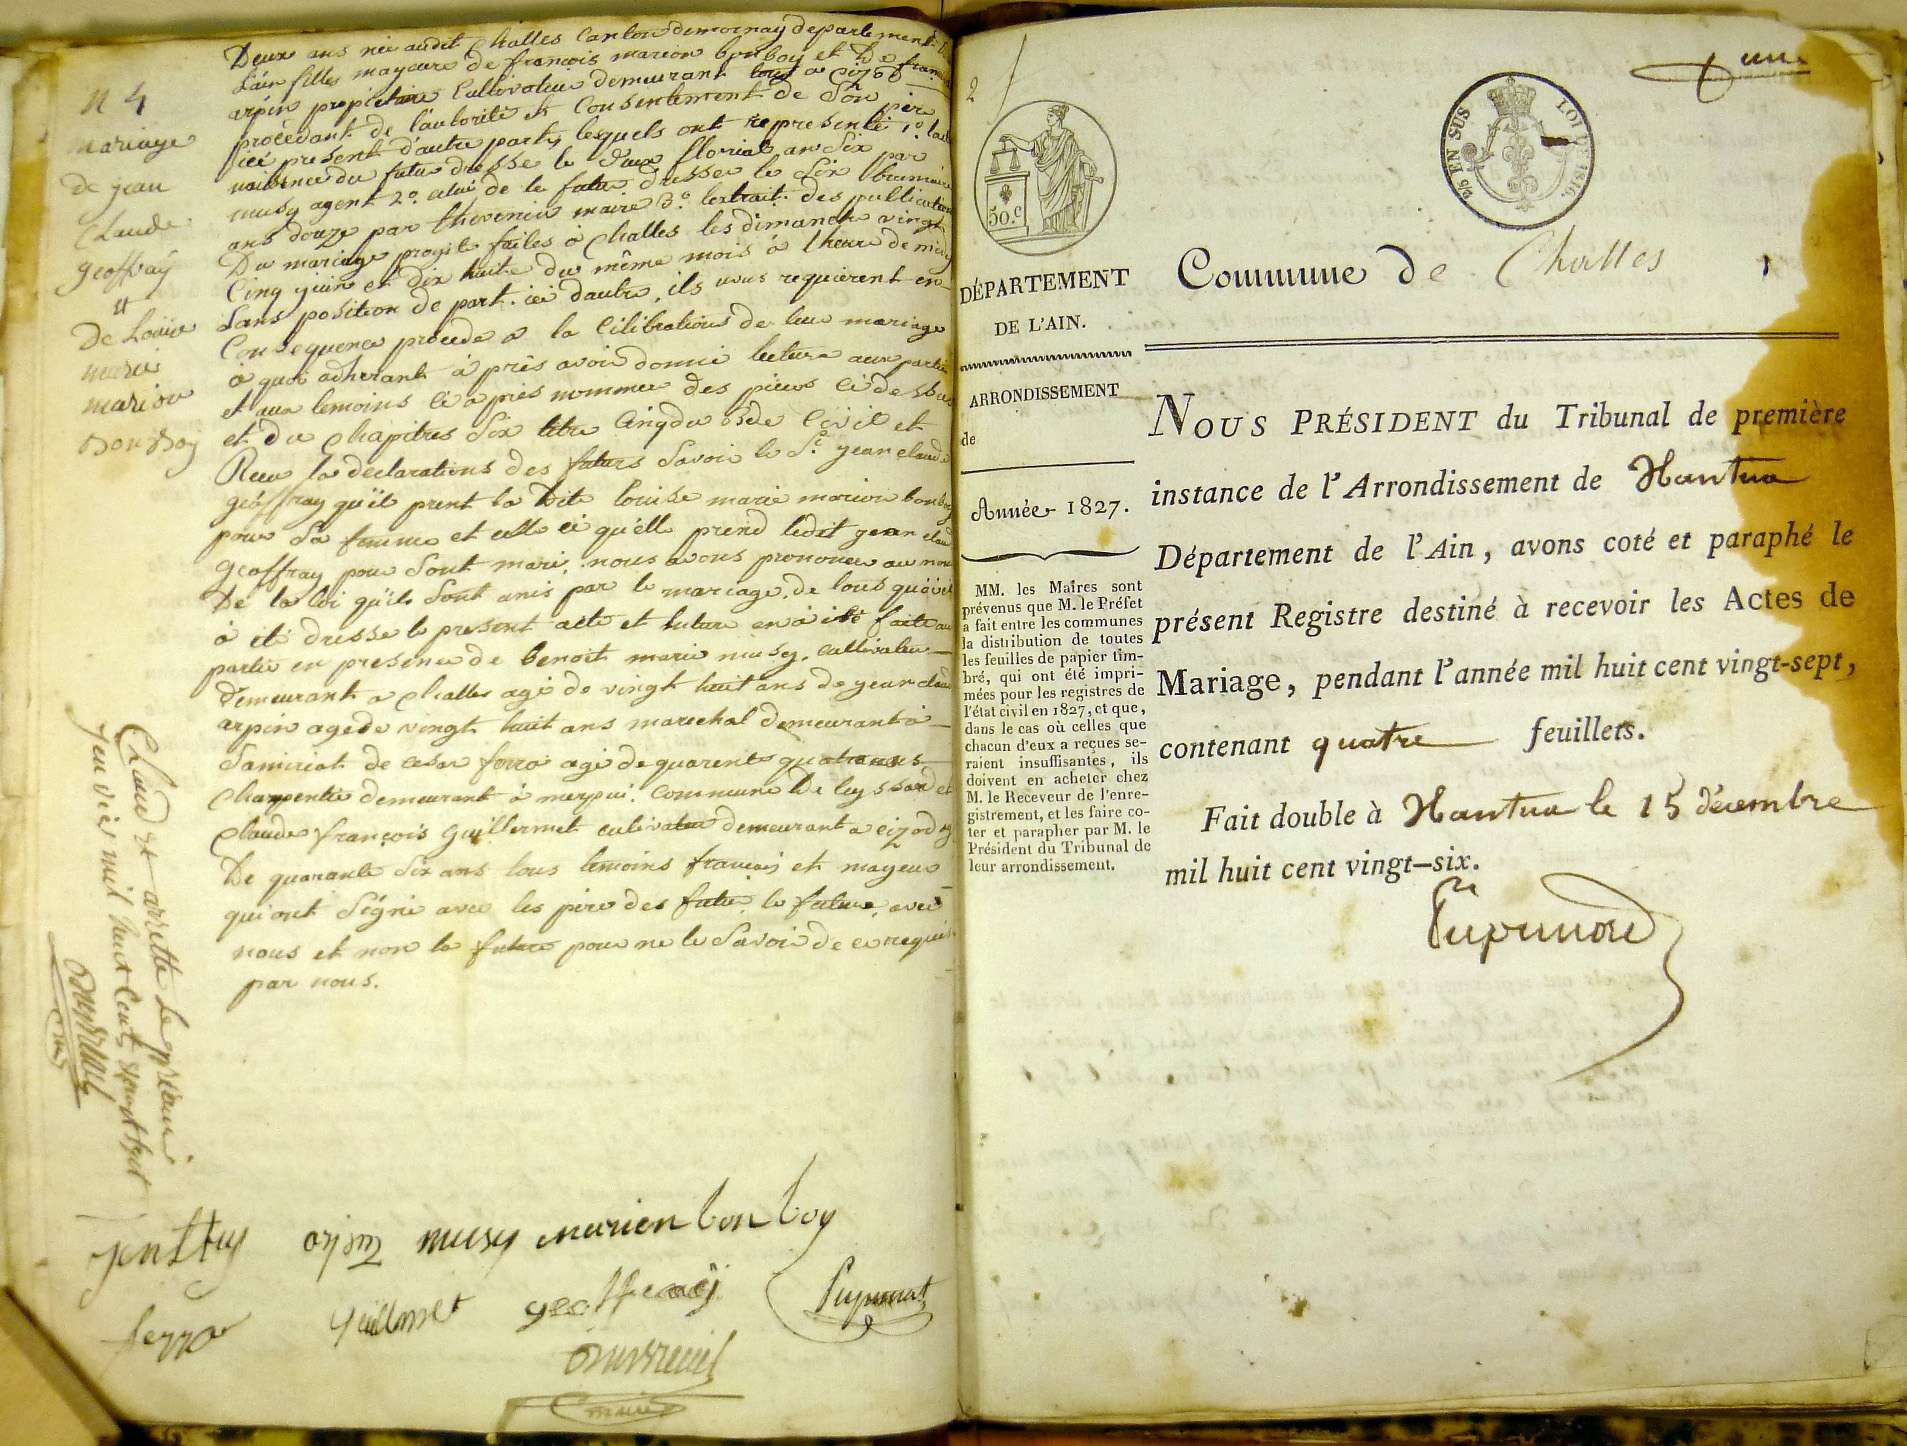 N 4
mariage
de jean
Claude
geoffray
et
De Louise
marie
marion
bonboy
Deux ans née audit Challes Canton de mornay departement
Lain fille mayeure de françois marion bonboy et De
arpin propietaire Cultivateur demeurant
procédant de l'autorité et Consentement de Son père
ici present d'autre part, lesquels ont representé 1º
naissence du futur dressé le deux florial an dix par
musy agent 2º celui de la future dressé le dix brumaire
ans douze par thevenin maire 3º lextrait des publications
Du mariage projeté faites à Challes les dimanche vingt
Cinq juin et dix huite du même mois à l heure de midy
Sans position de part ici dautre, ils nous requièrent en
Consequence procede a la Célébrations de leur mariage
a quoi adherant à près avoir donné lecture aux parties
et aux temoins ci apres nommée des pieces ci dessus
et du Chapitre Six titre Cinq du Code Civil et
Recu la declarations des futurs Savoir le Sr jean claude
géoffray qu'il prent la dite louise marie marion bonboy
pour Sa femme et elle ci qu'elle prend ledit jean claude
geoffray pour Sont mari, nous avons prononcé au nom
De la loi qu'ils Sont unis par le mariage, de tous quoi
à été dressé le present acte et lecture en à été faite aux
partie en presence de benoit marie musy, Cultivateur
demeurant a Challes agé de vingt huit ans de jean claude
arpin agé de vingt huit ans marechal demeurant à
Samiriat de cesar ferro agé de quarente quatre ans
Charpentie demeurant à
Claude françois guillermet cultivateur demeurant a
De quarante Six ans tous temoins français et mayeur
qui ont Signé avec les père des futur, le future, avec
nous et non la future pour ne le Savoir de ce requis
par nous.
Claud et arretté Le premier
jenvier mil huit Cent vingt Sept
geoffray arpin musy marion bon boy
ferro guillermet geoffray
maire
2
50.c
LOI DE 1816.
EN SUS
DÉPARTEMENT
DE L'AIN.
ARRONDISSEMENT
de
Année 1827.
MM. les Maires sont
prévenus que M. le Préfet
a fait entre les communes
la distribution de toutes
les feuilles de papier tim-
bré, qui ont été impri-
mées pour les registres de
l'état civil en 1827, et que,
dans le cas où celles que
chacun d'eux a reçues se-
raient insuffisantes, ils
doivent en acheter chez
M. le Receveur de l'enre-
gistrement, et les faire co-
ter et parapher par M. le
Président du Tribunal de
leur arrondissement.
Commune de Challes
NOUS PRÉSIDENT du Tribunal de première
instance de l'Arrondissement de Nantua
Département de l'Ain, avons coté et paraphé le
présent Registre destiné à recevoir les Actes de
Mariage, pendant l'année mil huit cent vingt-sept,
contenant quatre feuillets.
Fait double à Nantua le 15 décembre
mil huit cent vingt-six.